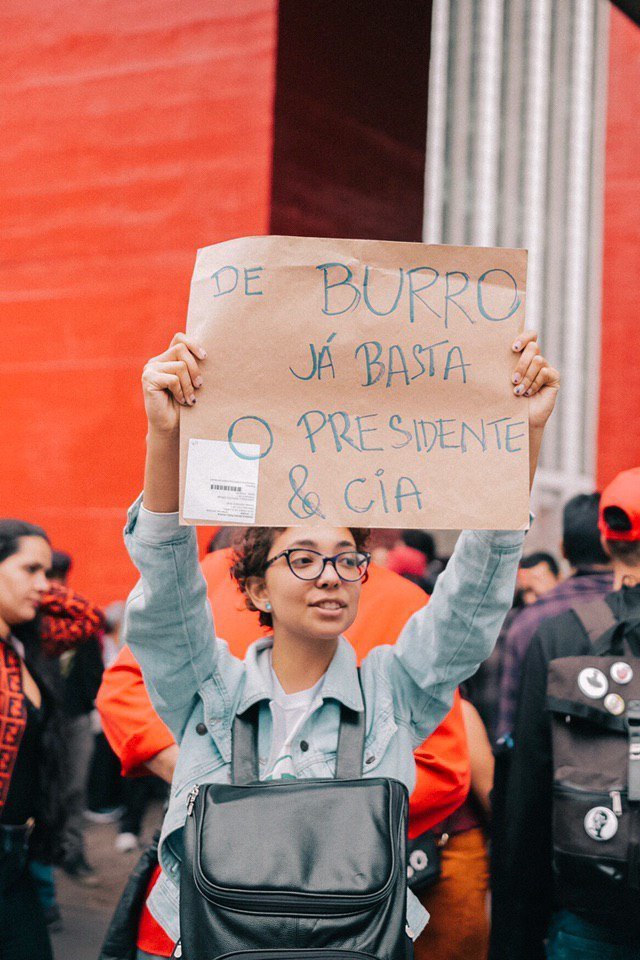 DE BURRO
JÁ BASTA
O PRESIDENTE
& CIA